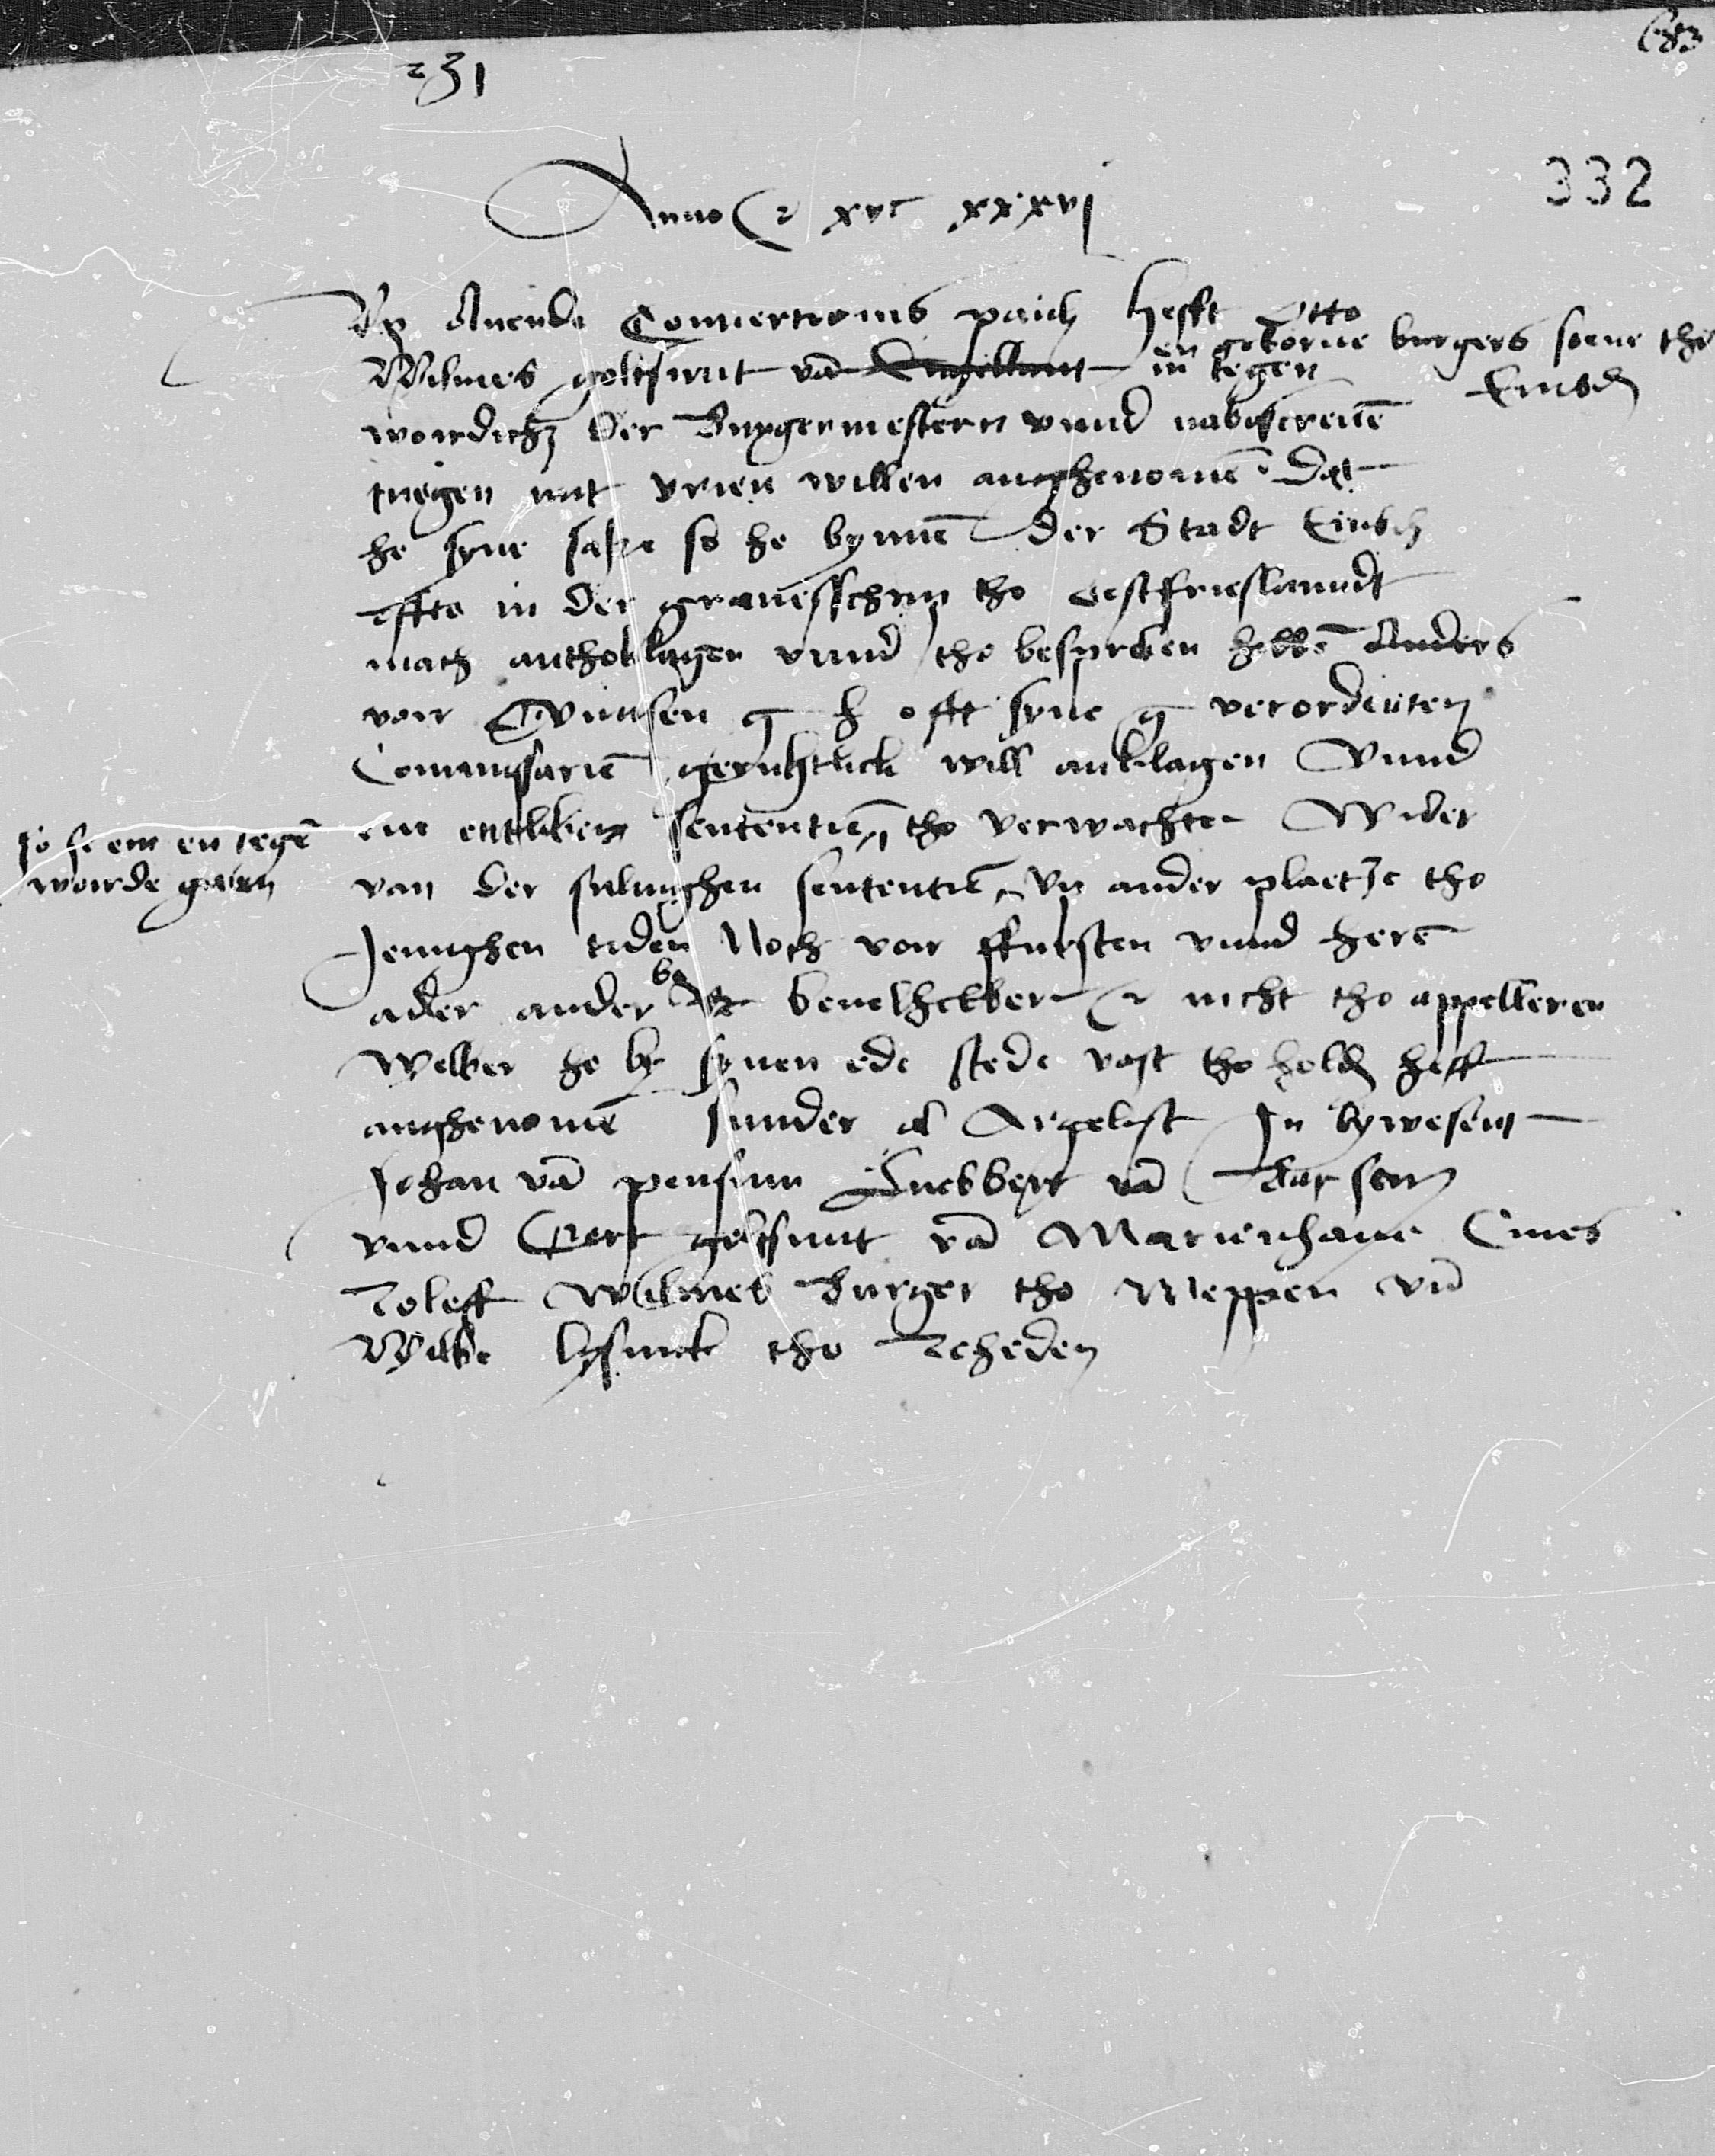 231
332
Anno (etc) xvc xxxvj
Up Avende Conversionis pauli hefft Otto
Wilmes goltsmit va Engellant en geborne burgers soene tho Embd
in tegen
wordich der Burgermestern vnnd nabescreue
tuegen mit vrien willen angehenome dat
he syne sake so he bynne der Stadt Embd
effte in der graueschup tho oestfrieslanndt
mach anthoklagen vnnd tho bespreken hebbe Anders
vor unsen g h offt syne g verordenten
Commissarie gerichtlick will anklagen Vnnd
ein entliken sententie tho verwachten Wider
so se em en tege
worde geuen
van der suluighen sententie vp ander plaetze tho
Jenighen tiden Noch vor ffursten vnnd here
ader ander be beuelhebber nicht tho appelleren
Welker he by synen ede stede vast tho holden heff
angehenome sunder al Argelist In bywesent
Johan va pensum Luebbert va Larsen
vnnd Gert goltsmit va Marienhaue Ciues
Roleff Wilmes Burger tho Meppen vn
Wilke lysinck tho Reheden